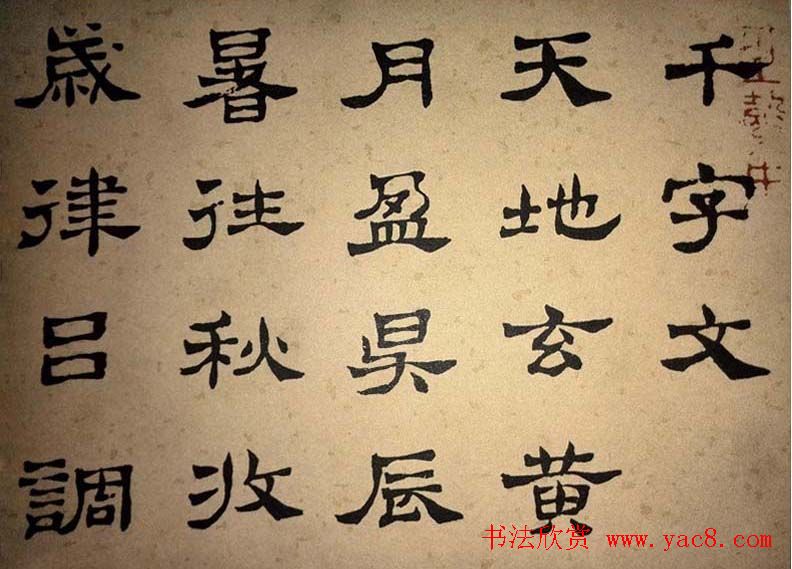 千字文
天地玄黄
月盈昃辰
暑往秋收
歲律吕調
书法欣赏 www.yac8.com